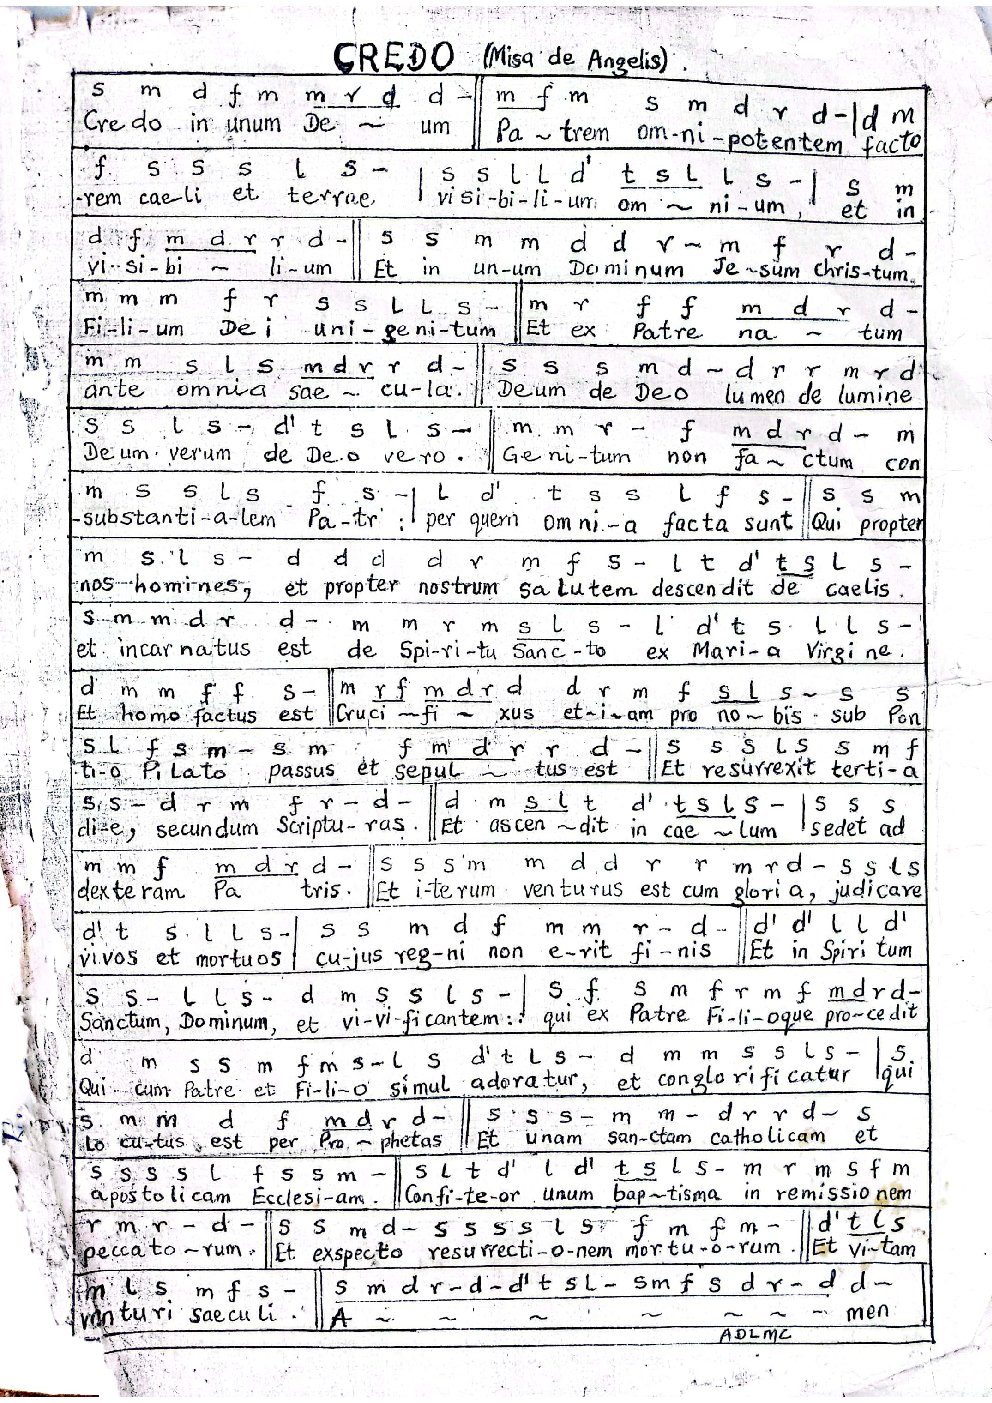 CREDO (Misa de Angelis).
s m d f m m r d d - || m f m s m d r d - | d m
Credo in unum De ~ um Pa ~ trem om-ni-potentem facto
f s s s l s - | s s l l d' t s l l s - | s m
-rem cae-li et terrae visi-bi-li-um om ~ ni-um, et in
d f m d r r d - || s s m m d d r ~ m f r d -
vi-si-bi ~ li-um Et in un-um Dominum Je-sum Chris-tum.
m m m f r s s l l s - || m r f f m d r d -
Fi-li-um Dei uni-genitum Et ex Patre na ~ tum
m m s l s m d r r d - || s s s m d ~ d r r m r d
ante omnia sae ~ cu-la. Deum de Deo lumen de lumine
s s l s - d' t s l s - || m m r - f m d r d - m
Deum verum de Deo vero. Geni-tum non fa ~ ctum con
m s s l s f s - | l d' t s s l f s - || s s m
-substanti-a-lem Pa-tri: per quem omni-a facta sunt Qui propter
m s l s - d d d d r m f s - l t d' t s l s -
nos homines, et propter nostrum salutem descendit de caelis.
s m m d r d - m m r m s l s - l d' t s l l s -
et incarnatus est de Spi-ri-tu Sanc-to ex Mari-a Virgine.
d m m f f s - || m r f m d r d d r m f s l s ~ s s
Et homo factus est Cruci ~ fi ~ xus et-i-am pro no ~ bis sub Pon
s l f s m - s m f m d r r d - || s s s l s s m f
ti-o Pilato passus et sepul ~ tus est Et resurrexit terti-a
s s - d r m f r - d - || d m s l t d' t s l s - | s s s
di-e, secundum Scriptu-ras. Et ascen ~ dit in cae ~ lum sedet ad
m m f m d r d - || s s s m m d d r r m r d - s s l s
dexteram Pa tris. Et i-terum venturus est cum gloria, judicare
d' t s l l s - | s s m d f m m r - d - || d' d' l l d'
vivos et mortuos cu-jus reg-ni non e-rit fi-nis Et in Spiritum
s s - l l s - d m s s l s - | s f s m f r m f m d r d -
Sanctum, Dominum, et vi-vi-ficantem: qui ex Patre Fi-li-oque pro-cedit
d m s s m f m s - l s d' t l s - d m m s s l s - | s.
Qui cum Patre et Fi-li-o simul adoratur, et conglorificatur qui
s m m d f m d r d - || s s s - m m - d r r d ~ s
lo cu-tus est per Pro ~ phetas Et unam san-ctam catholicam et
s s s s l f s s m - || s l t d' l d' t s l s - m r m s f m
apostolicam Ecclesi-am. Confi-te-or unum bap ~ tisma in remissionem
r m r - d - || s s m d - s s s s l s f m f m - || d' t l s
peccato ~ rum. Et exspecto resurrecti-o-nem mortu-o-rum. Et vi-tam
m l s m f s - || s m d r - d - d' t s l - s m f s d r - d d -
venturi saeculi. A ~ ~ ~ ~ ~ ~ ~ men
ADLMC